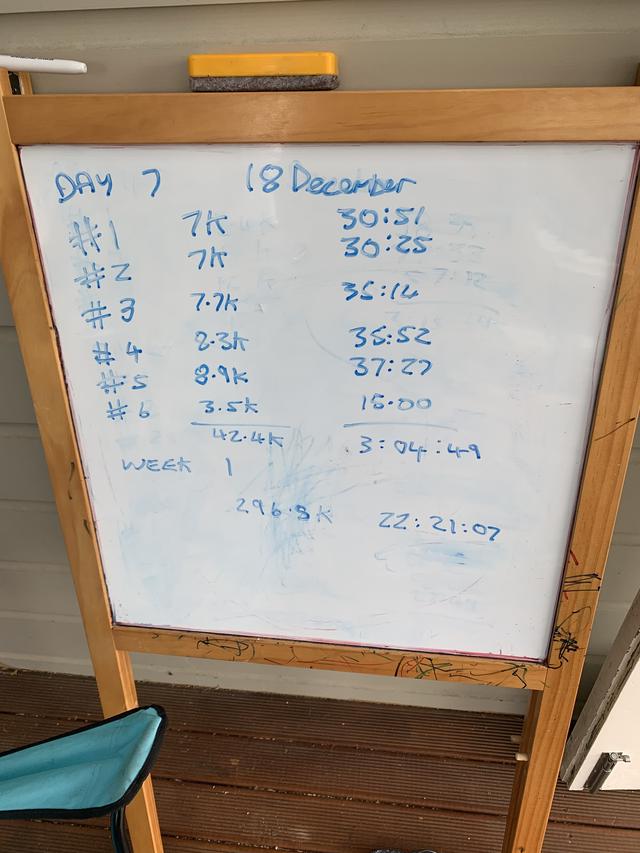 DAY 7 18 December
#1 7K 30:51
#2 7K 30:25
#3 7.7K 35:14
#4 8.3K 35:52
#5 8.9K 37:27
#6 3.5K 15:00
42.4K 3:04:49
WEEK 1
296.8K 22:21:07